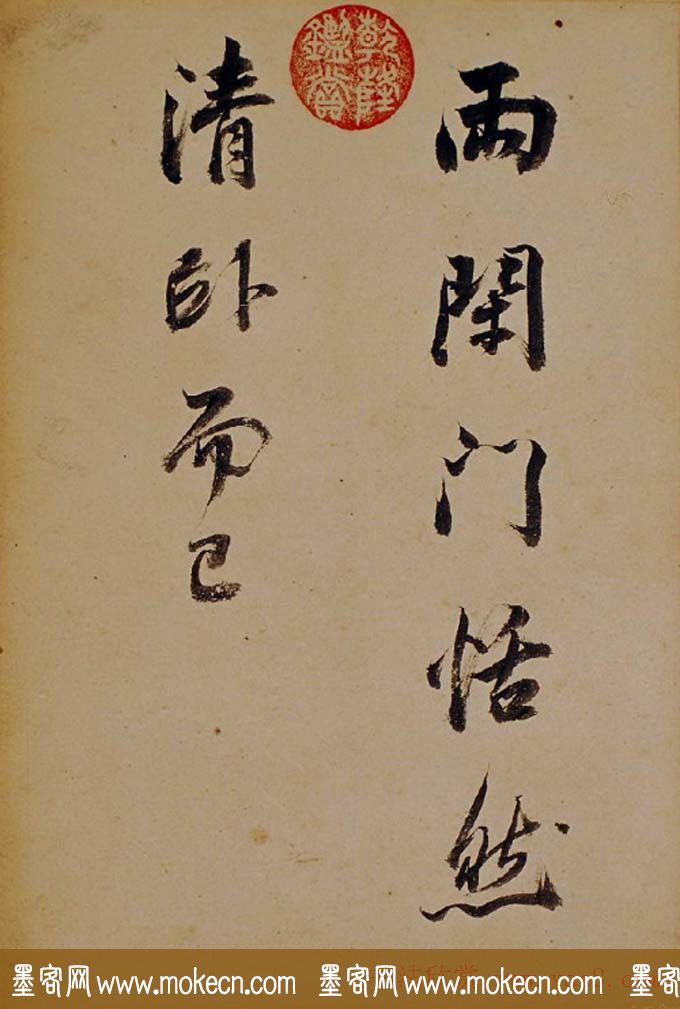 雨閑门恬然
乾隆鑑賞
清卧而已
墨客网 www.mokecn.com 墨客网 www.mokecn.com 墨客网